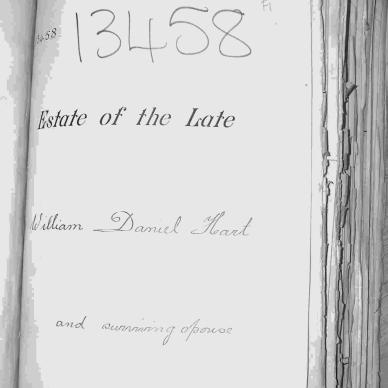 13458
3458
Estate of the Late
William Daniel Hart
and surviving spouse